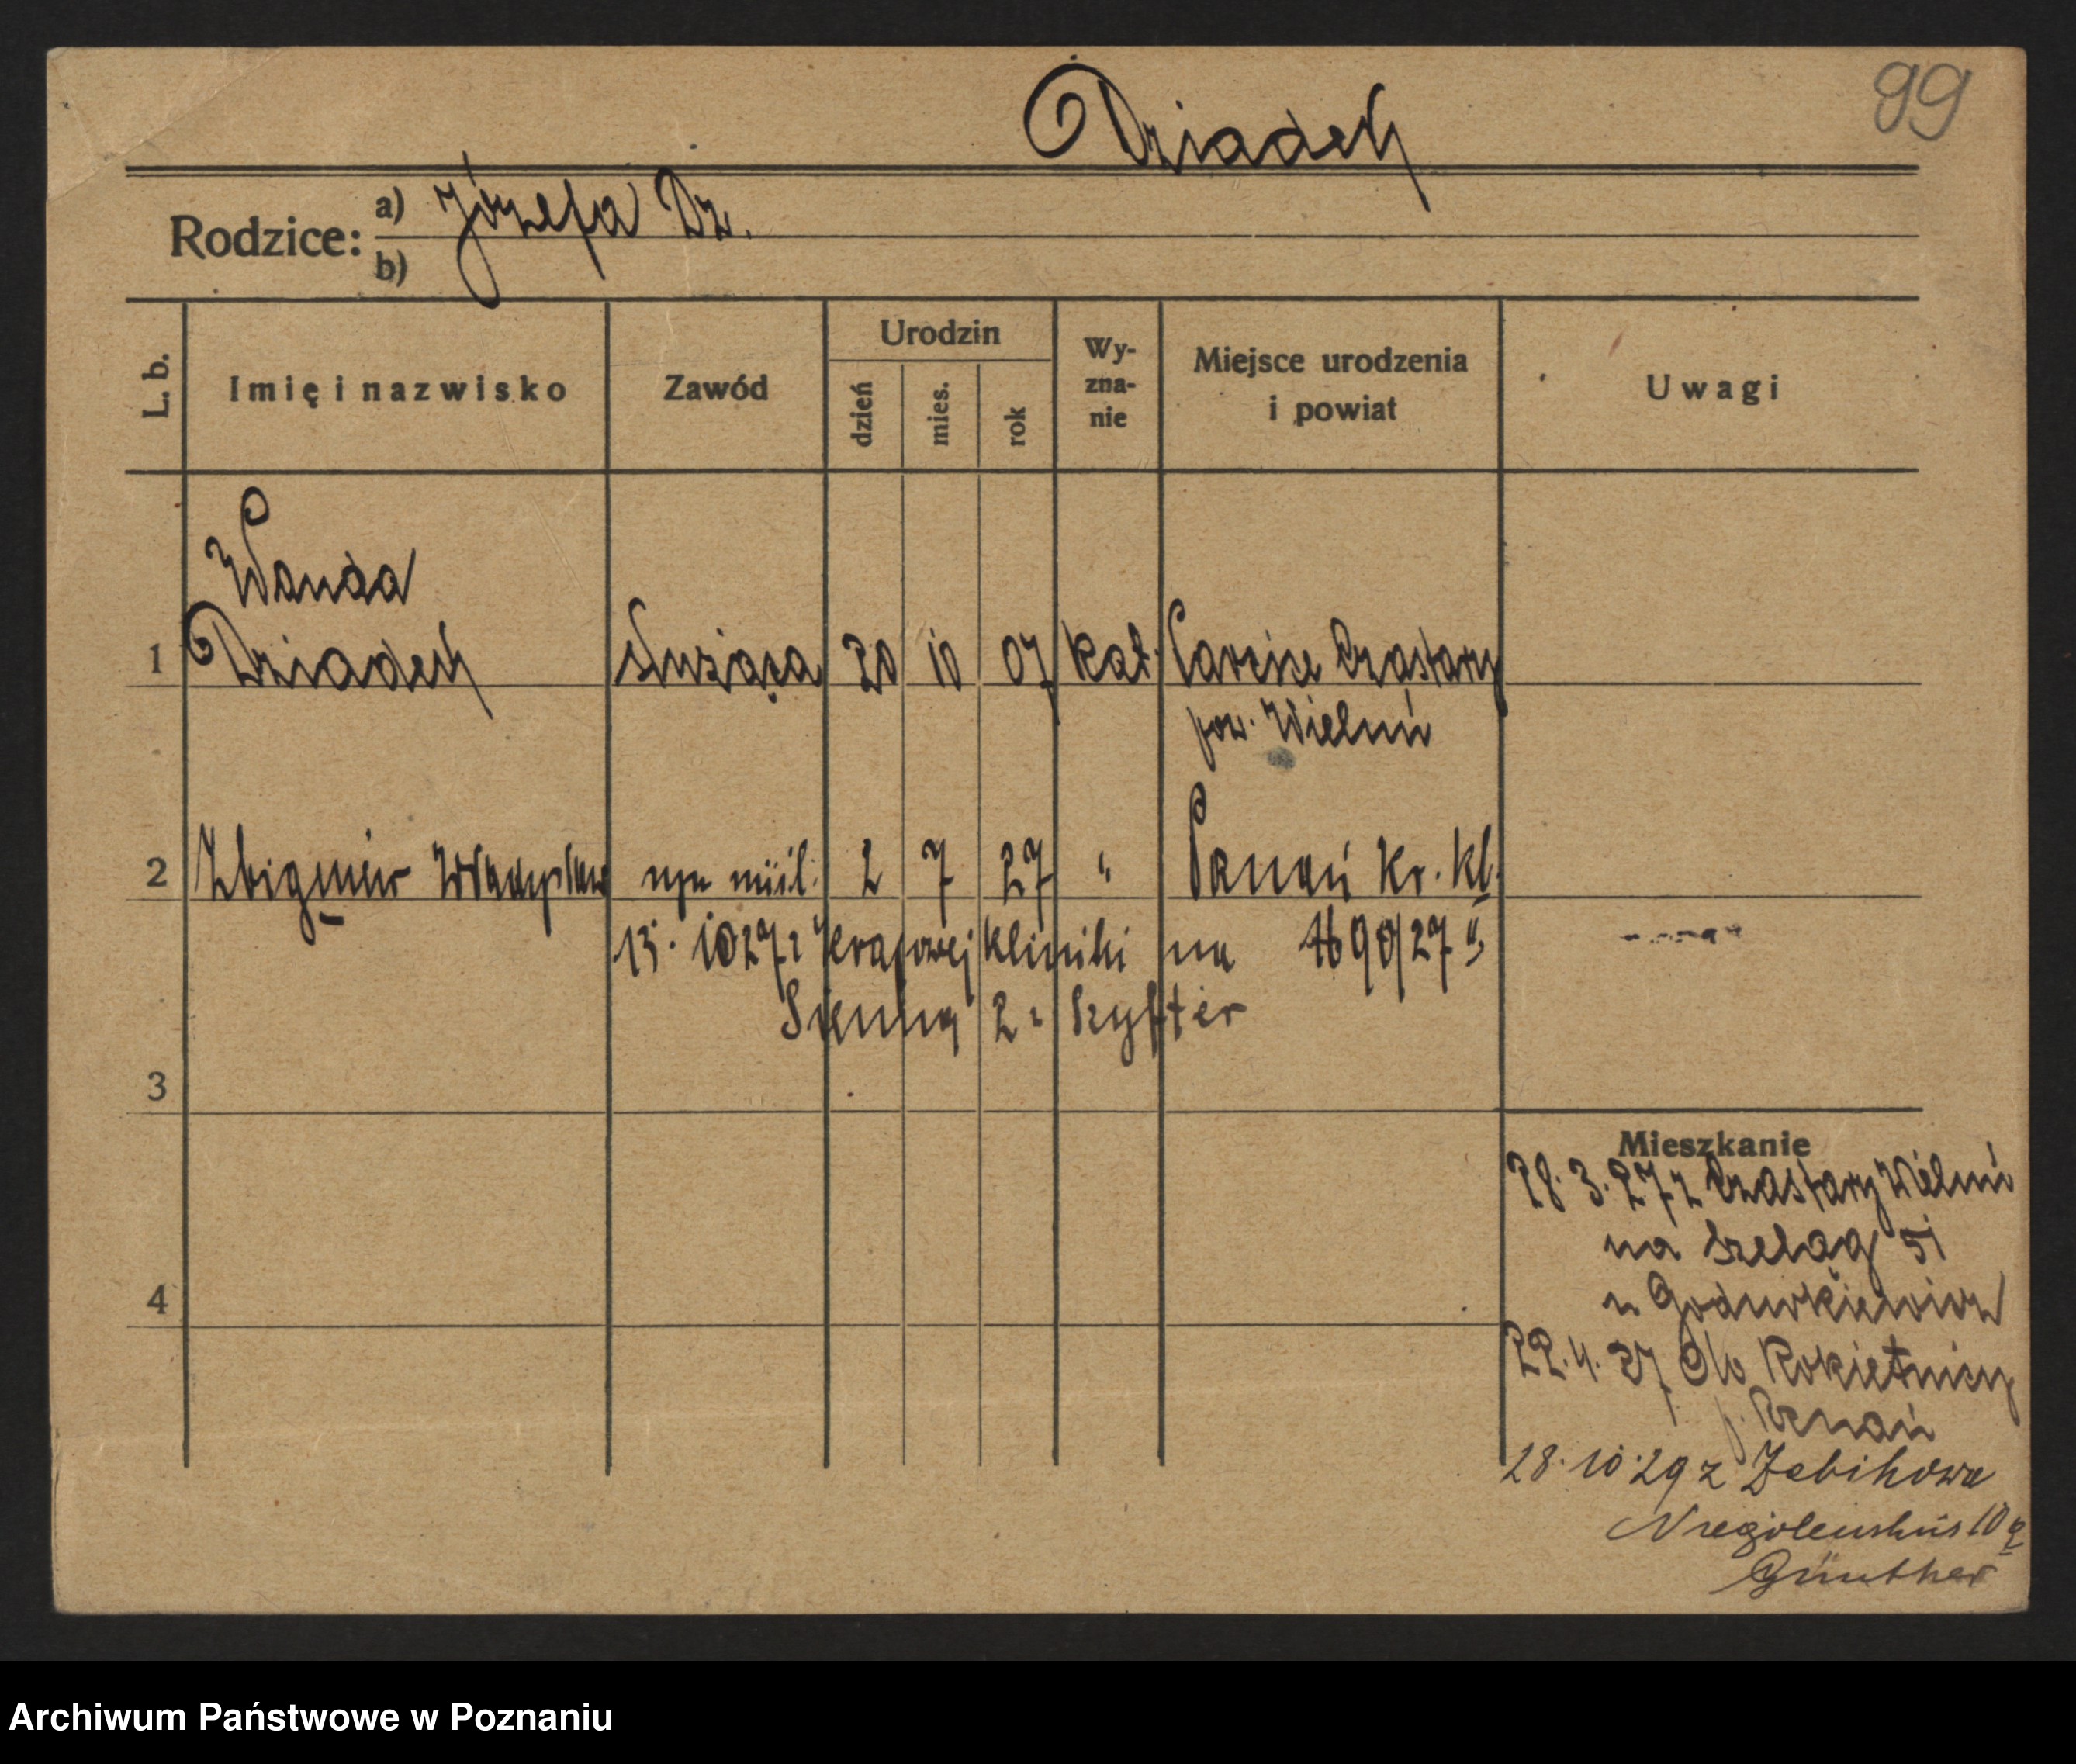 99
Dziadek
Rodzice: a) Józefa Dz.
b)
L. b.
Imię i nazwisko
Zawód
Urodzin
dzień
mies.
rok
Wy-
zna-
nie
Miejsce urodzenia
i powiat
Uwagi
Wanda
1 Dziadek służąca 20 10 07 kat. Parcice Czastary
pow. Wieluń
2 Zbigniew Władysław 2 7 27 " Poznań Kr. Kl.
13. 10 27 z Krajowej Kliniki na
Sienna 2 z Szyfter
3
Mieszkanie
28. 3. 27 z Czastary Wieluń
na Szeląg 51
4
22. 4. 27 do Rokietnicy
p. Poznań
28. 10. 29 z Żabikowa
10
Günther
Archiwum Państwowe w Poznaniu